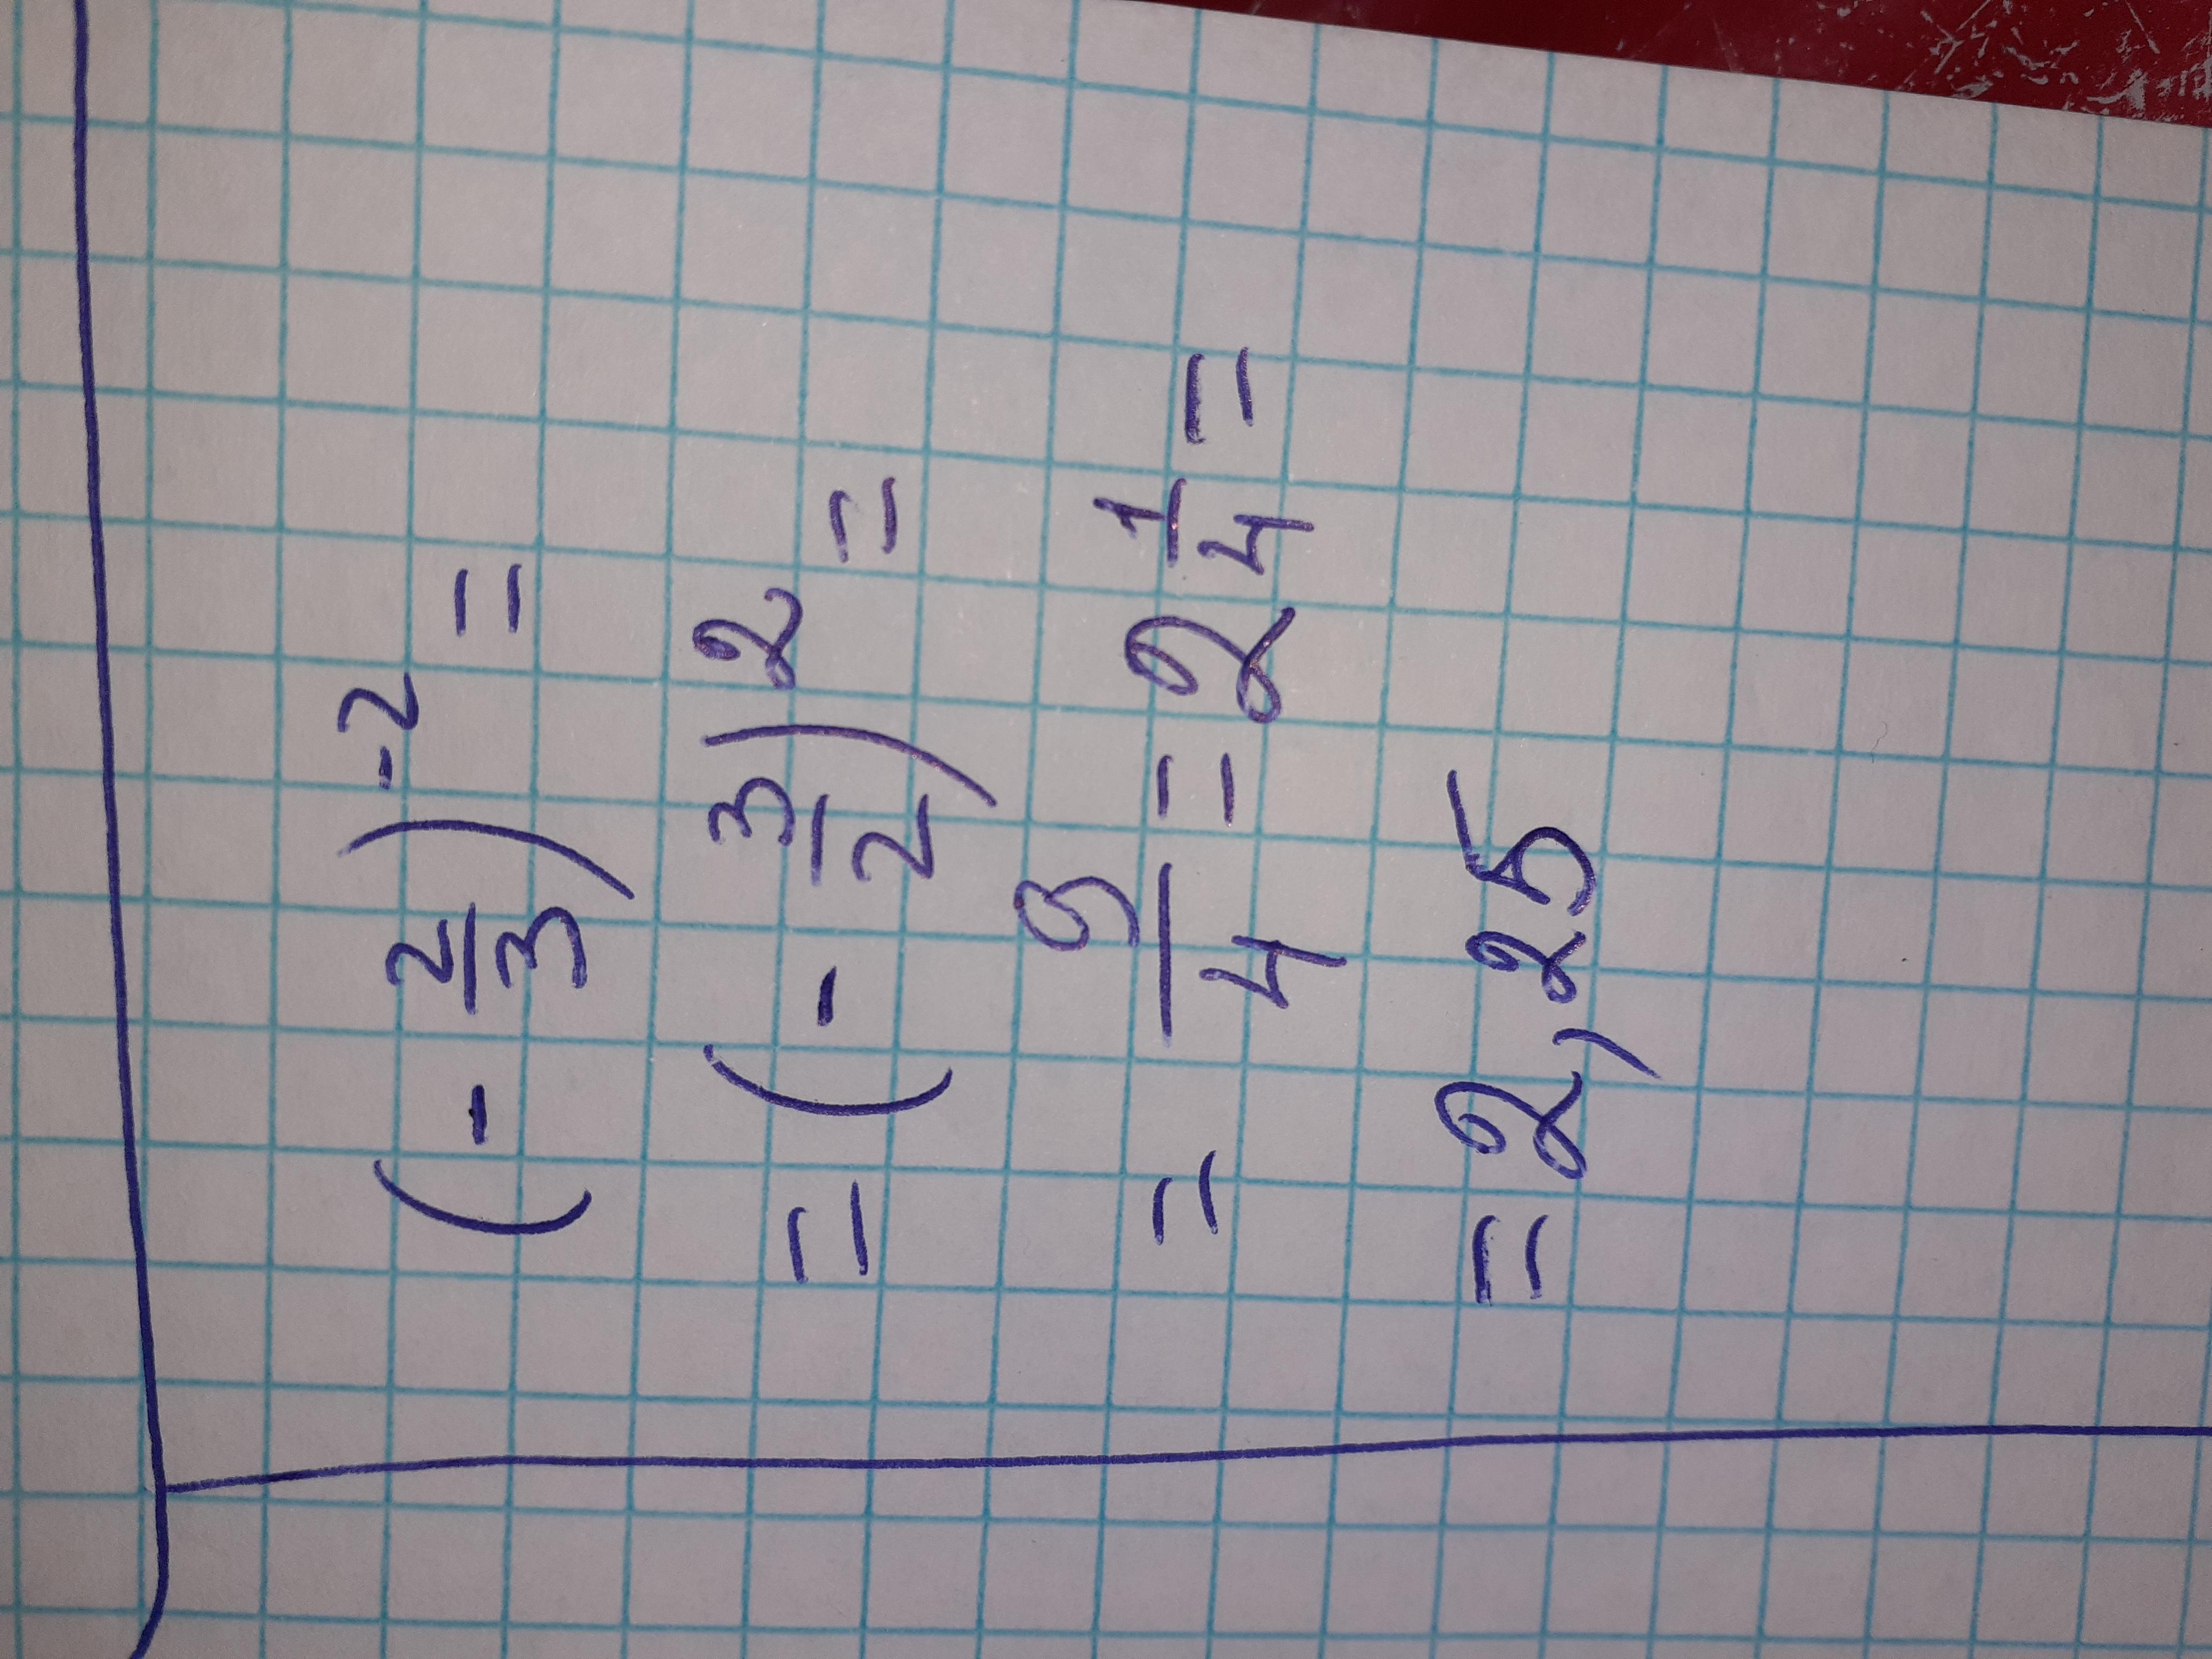 (- 2/3)^-2 =
= (- 3/2)^2 =
= 9/4 = 2 1/4 =
= 2,25